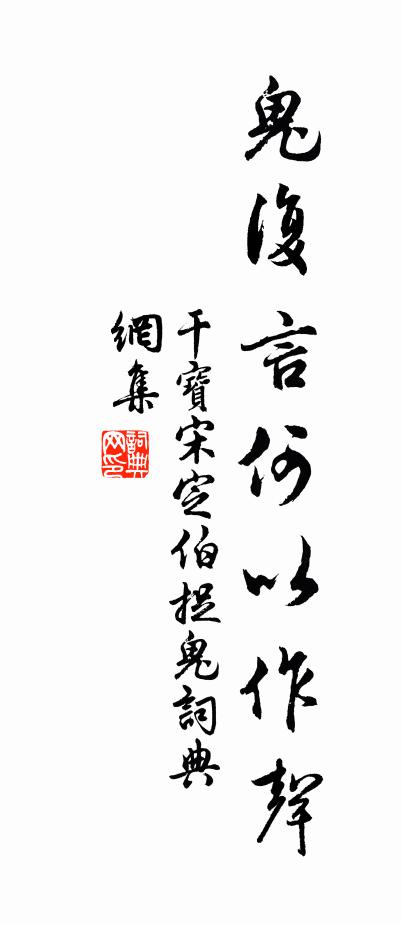 鬼復言何以作聲
干寶宋定伯捉鬼詞典
網集
詞典
网印